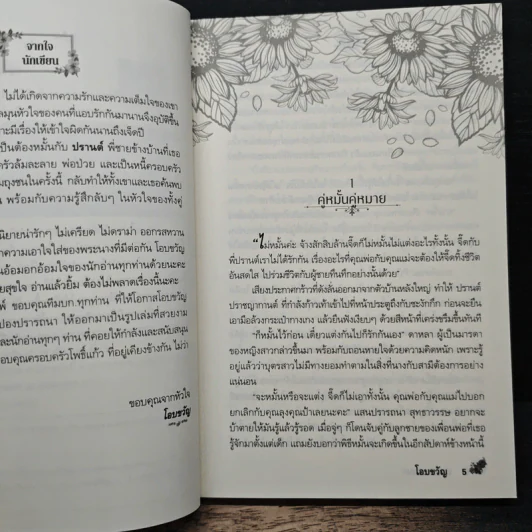 จากใจ
นักเขียน
ไม่ได้เกิดจากความรักและความเต็มใจของเขา
ละมุนหัวใจของคนที่แอบรักกันมานานจึงอุบัติขึ้น
าะมีเรื่องให้เข้าใจผิดกันนานถึงเจ็ดปี
เป็นต้องหมั้นกับ ปรานต์ พี่ชายข้างบ้านที่เธอ
ครัวล้มละลาย พ่อป่วย และเป็นหนี้ครอบครัว
ถุงชนในครั้งนี้ กลับทำให้ทั้งเขาและเธอค้นพบ
น พร้อมกับความรู้สึกลับๆ ในหัวใจของทั้งคู่
นิยายน่ารักๆ ไม่เครียด ไม่ดราม่า ออกรสหวาน
าความเอาใจใส่ของพระนางที่มีต่อกัน โอบขวัญ
นอ้อมอกอ้อมใจของนักอ่านทุกท่านด้วยนะคะ
ยสุขใจ อ่านแล้วยิ้ม ต้องไม่พลาดเรื่องนี้นะคะ
พ์ ขอบคุณทีมบก.ทุกท่าน ที่ให้โอกาสโอบขวัญ
ปองปรารถนา ให้ออกมาเป็นรูปเล่มที่สวยงาม
ะนักอ่านทุกๆ ท่าน ที่คอยให้กำลังและสนับสนุน
อบคุณครอบครัวโพธิ์แก้ว ที่อยู่เคียงข้างกัน ไม่ว่า
ขอบคุณจากหัวใจ
โอบขวัญ
1
คู่หมั้นคู่หมาย
"ไม่หมั้นค่ะ จ้างสักสิบล้านจี๊ดก็ไม่หมั้นไม่แต่งอะไรทั้งนั้น จี๊ดกับ
พี่ปรานต์เราไม่ได้รักกัน เรื่องอะไรที่คุณพ่อกับคุณแม่จะต้องให้จี๊ดทิ้งชีวิต
อันสดใส ไปร่วมชีวิตกับผู้ชายทึนทึกอย่างนั้นด้วย"
เสียงประกาศกร้าวที่ดังลั่นออกมาจากตัวบ้านหลังใหญ่ ทำให้ ปรานต์
ปราชญ์กานต์ ที่กำลังก้าวเท้าเข้าไปที่หน้าประตูถึงกับชะงักกึก ก่อนจะยืน
เอามือล้วงกระเป๋ากางเกง แล้วยืนฟังเงียบๆ ด้วยสีหน้าที่เคร่งขรึมขึ้นทันที
"ก็หมั้นไว้ก่อน เดี๋ยวแต่งกันไปก็รักกันเอง" ดาหลา ผู้เป็นมารดา
ของหญิงสาวกล่าวขึ้นมา พร้อมกับถอนหายใจด้วยความคิดหนัก เพราะรู้
อยู่แล้วว่าบุตรสาวไม่มีทางยอมทำตามในสิ่งที่นางกับสามีต้องการอย่าง
แน่นอน
"จะหมั้นหรือจะแต่ง จี๊ดก็ไม่เอาทั้งนั้น คุณพ่อกับคุณแม่ไปบอก
ยกเลิกกับคุณลุงคุณป้าเลยนะคะ" แสนปรารถนา สุทธาวรรษ อยากจะ
บ้าตายให้มันรู้แล้วรู้รอด เมื่อจู่ๆ ก็โดนจับคู่กับลูกชายของเพื่อนพ่อที่เธอ
รู้จักมาตั้งแต่เด็ก แถมยังบอกว่าพิธีหมั้นจะเกิดขึ้นในอีกสัปดาห์ข้างหน้านี้
โอบขวัญ 5